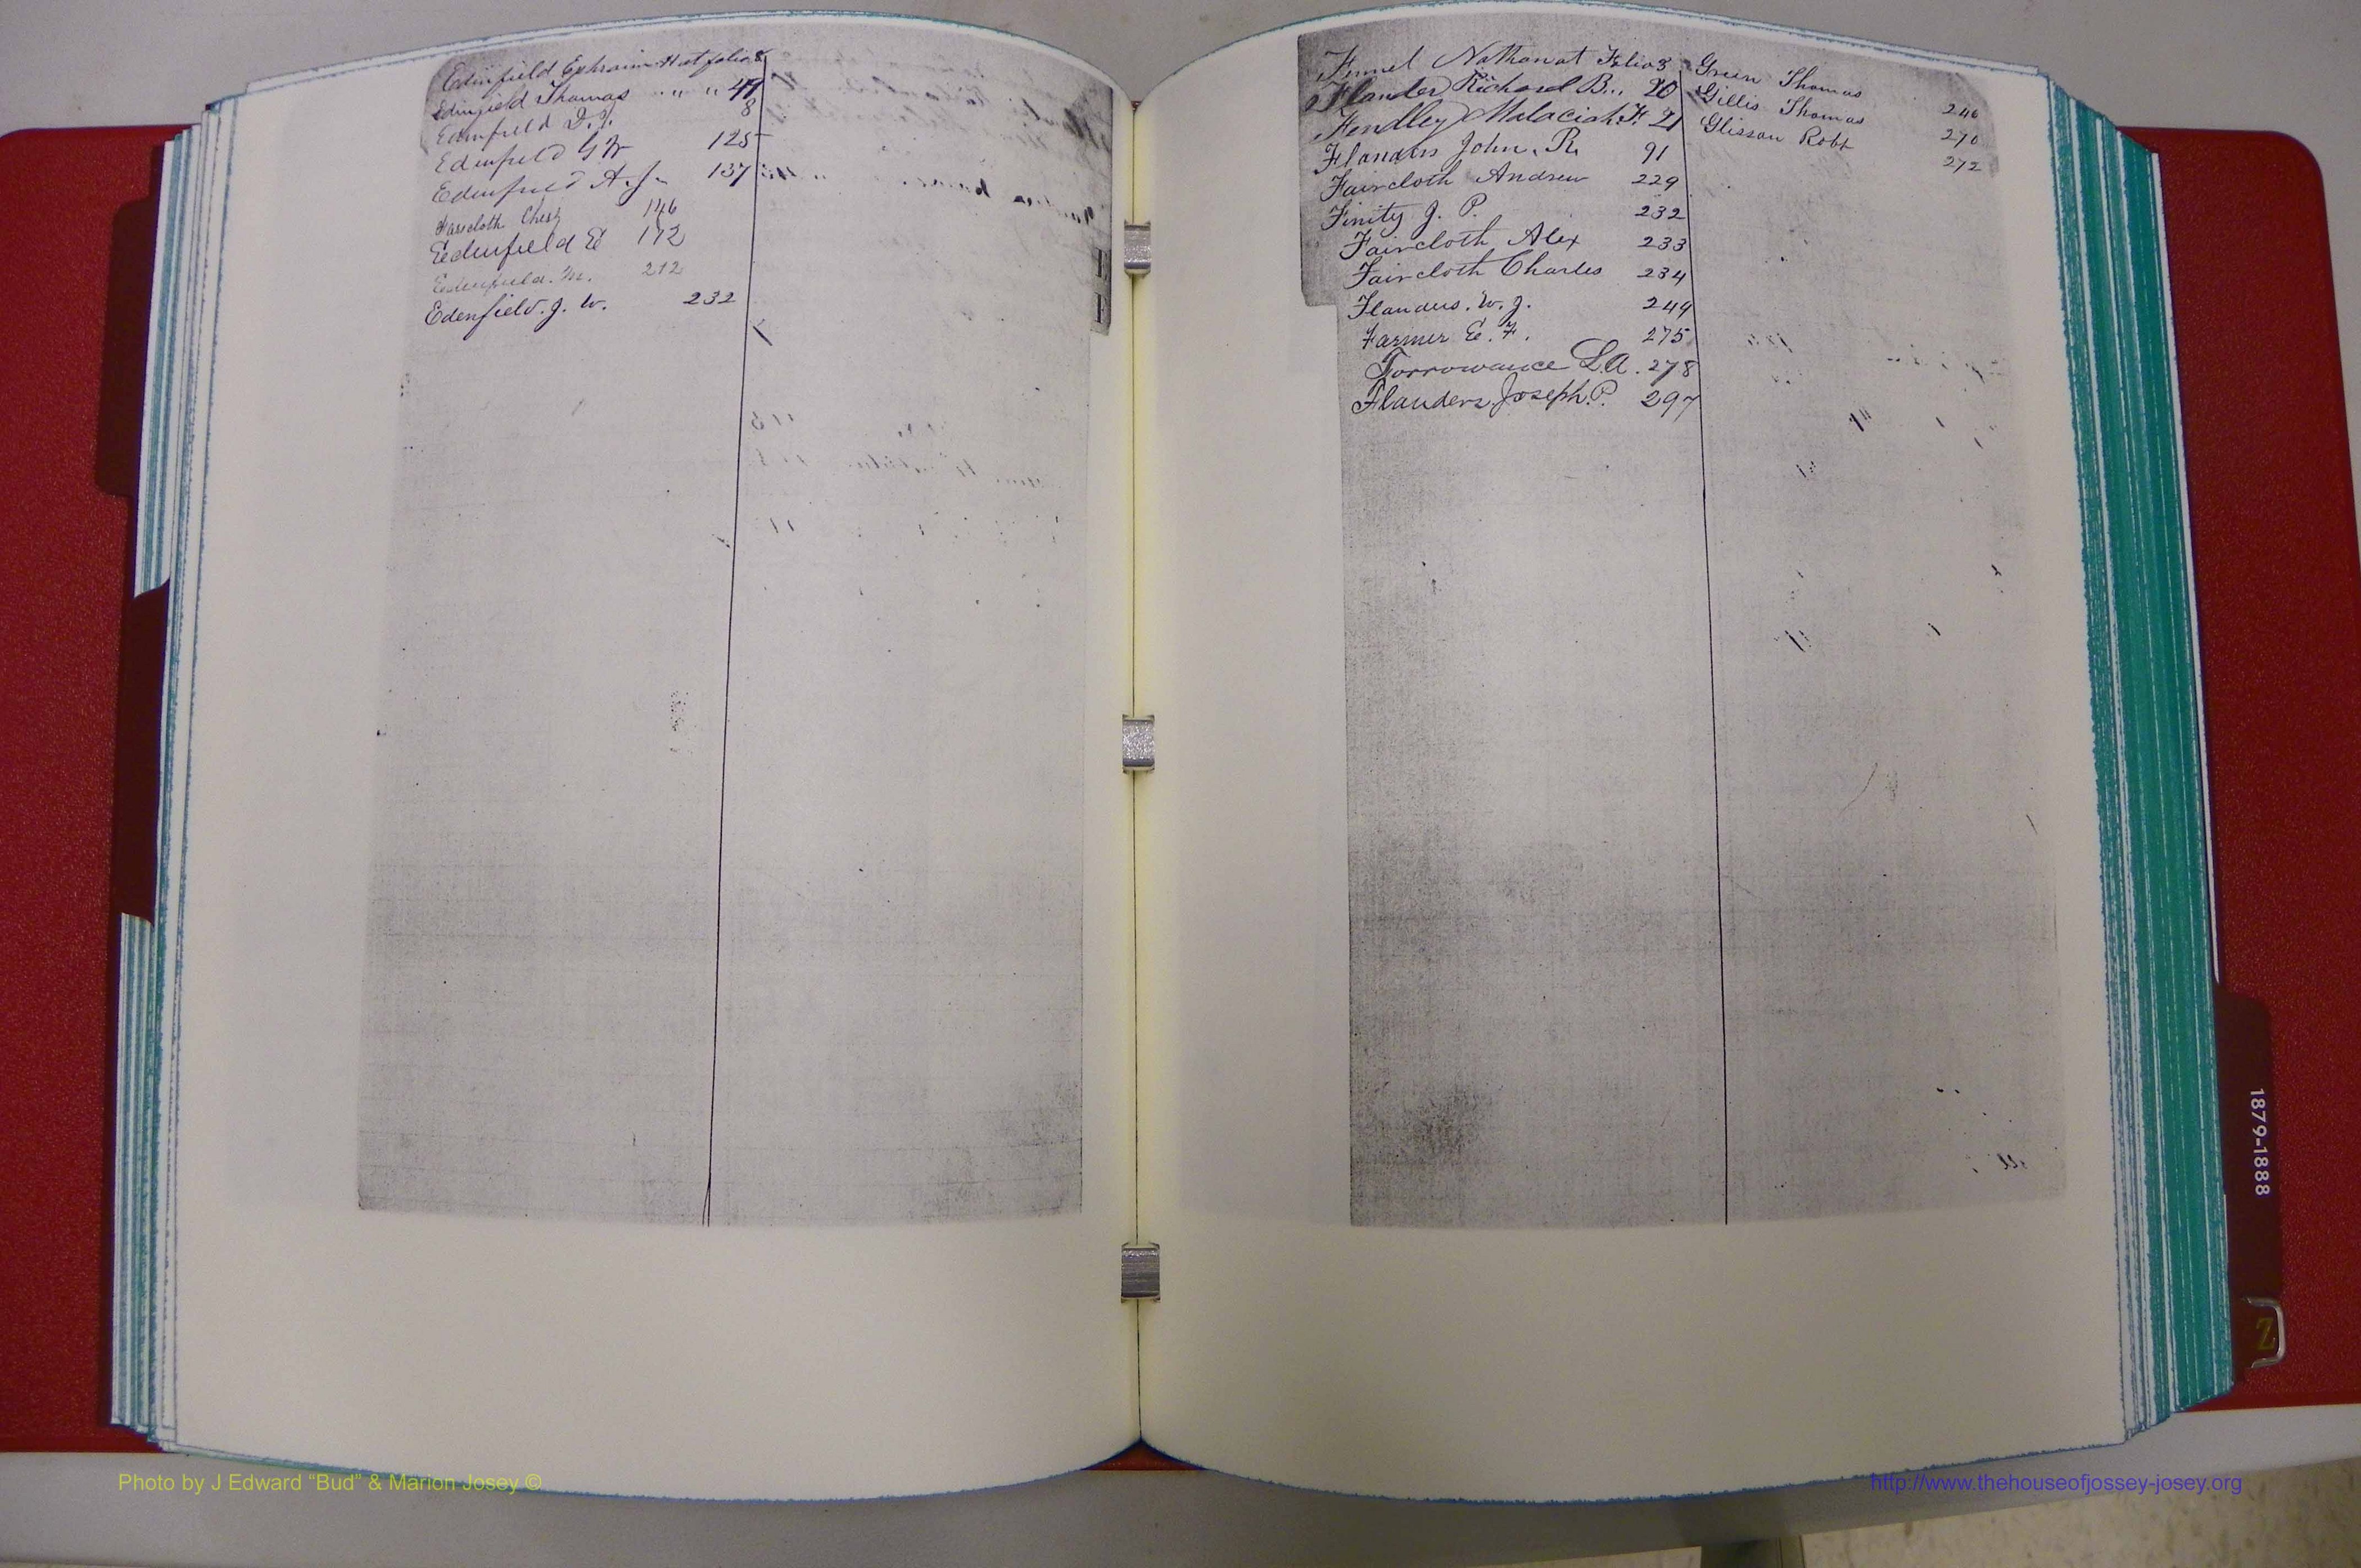 Edinfield Ephraim at folio 8
Edinfield Thomas " " 49
8
Edinfield D. J.
Edenfield G W 125
Edenfield A. J. 137
Faircloth Chas 146
Eedenfield E 172
Edenfield. M. 212
Edenfield. J. W. 232
E
F
Fennel Nathanal Folio 3
Flander Richard B.. 20
Fendley Malaciah. F. 21
Flanders John. R. 91
Faircloth Andrew 229
Finity J. P. 232
Faircloth Alex 233
Faircloth Charles 234
Flanders. W. J. 249
Farmer E. F. 275
Forrowance L.A. 278
Flanders Joseph. P. 297
Green Thomas 246
Gillis Thomas 270
Glisson Robt 272
1879-1888
Z
Photo by J Edward “Bud” & Marion Josey ©
http://www.thehouseofjossey-josey.org